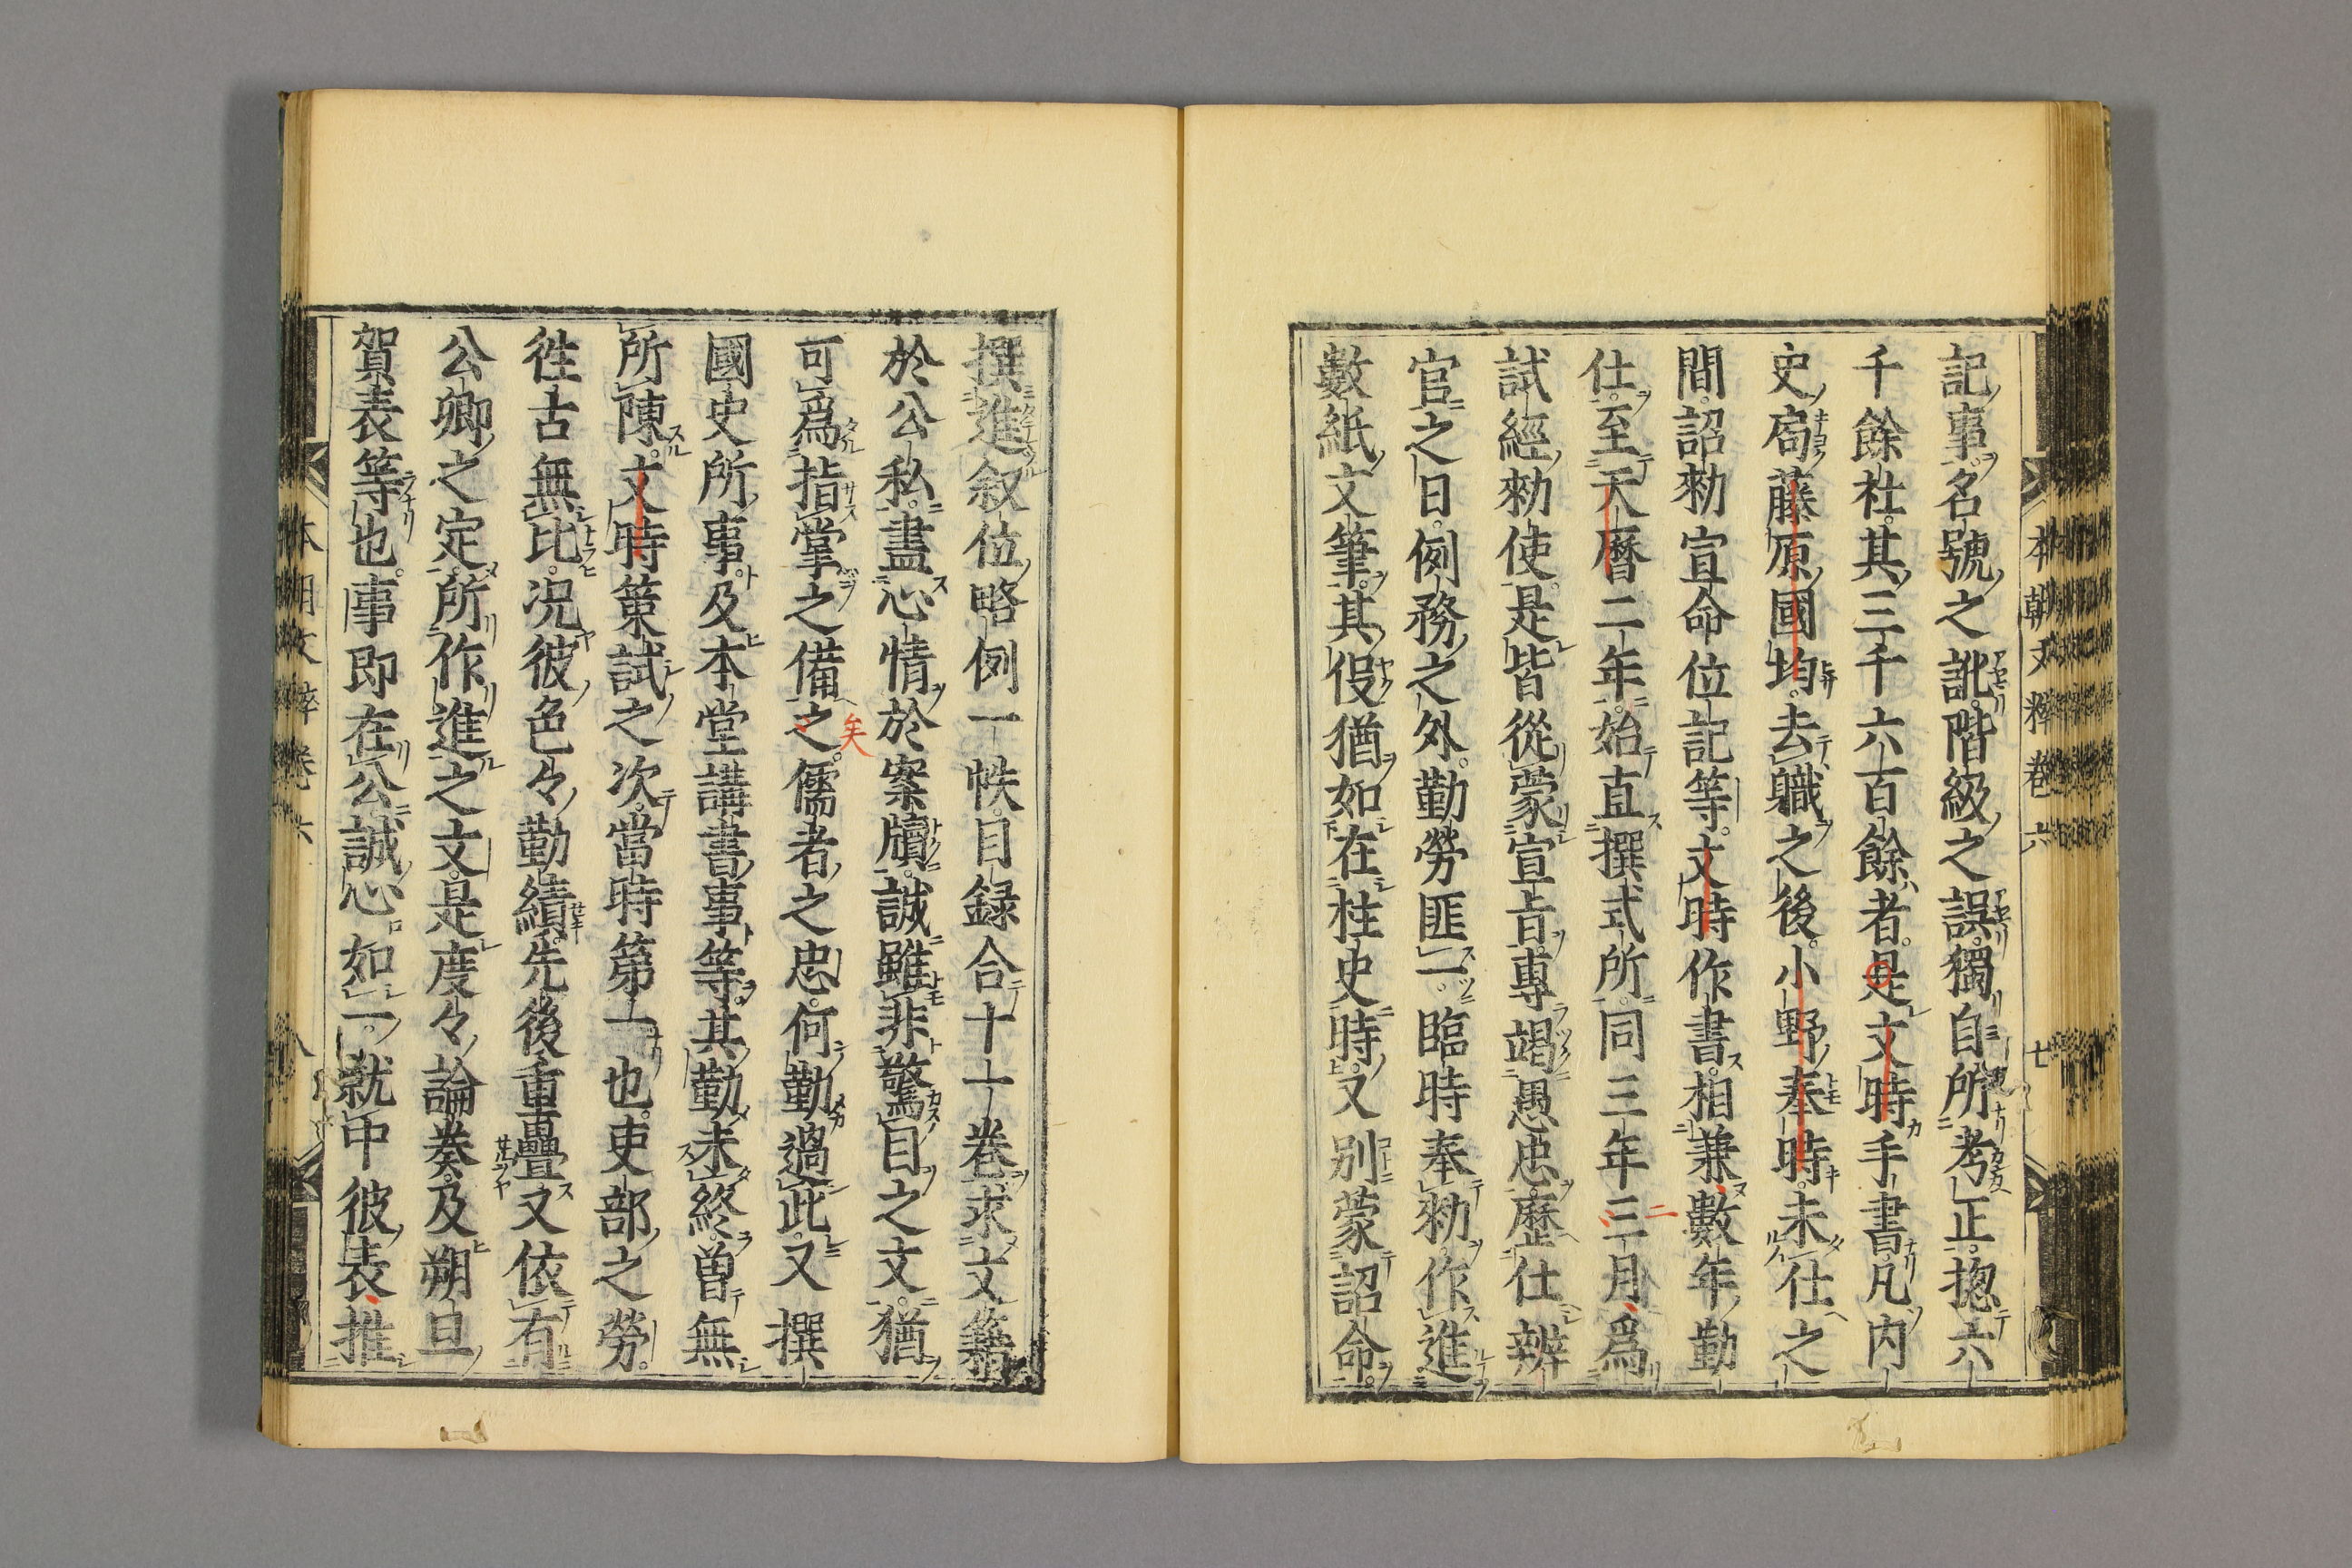 記事名號之訛階級之誤獨自所考正揔六
千餘社其三千六百餘者是文時手書凡内
史局藤原國均去職之後小野奉時未仕之
間詔勑宣命位記等文時作書相兼數年勤
仕至天曆二年始直撰式所同三年三月爲
試經勑使是皆從蒙宣旨專竭愚忠歷仕辨
官之日例務之外勤勞匪一臨時奉勑作進
數紙文筆其假猶如在柱史時又別蒙詔命
撰進叙位略例一帙目録合十一卷求文籍
於公私盡心情於案牘誠雖非驚目之文猶
可爲指掌之備之儒者之忠何勤過此又撰
矣
國史所事及本堂講書事等其勤未終曽無
所陳文時策試之次當時第一也吏部之勞
徃古無比况彼色々勤績先後重疊又依有
公卿之定所作進之文是度々論奏及朔旦
賀表等也事即在公誠心如一就中彼表推
本朝文粹卷六
七